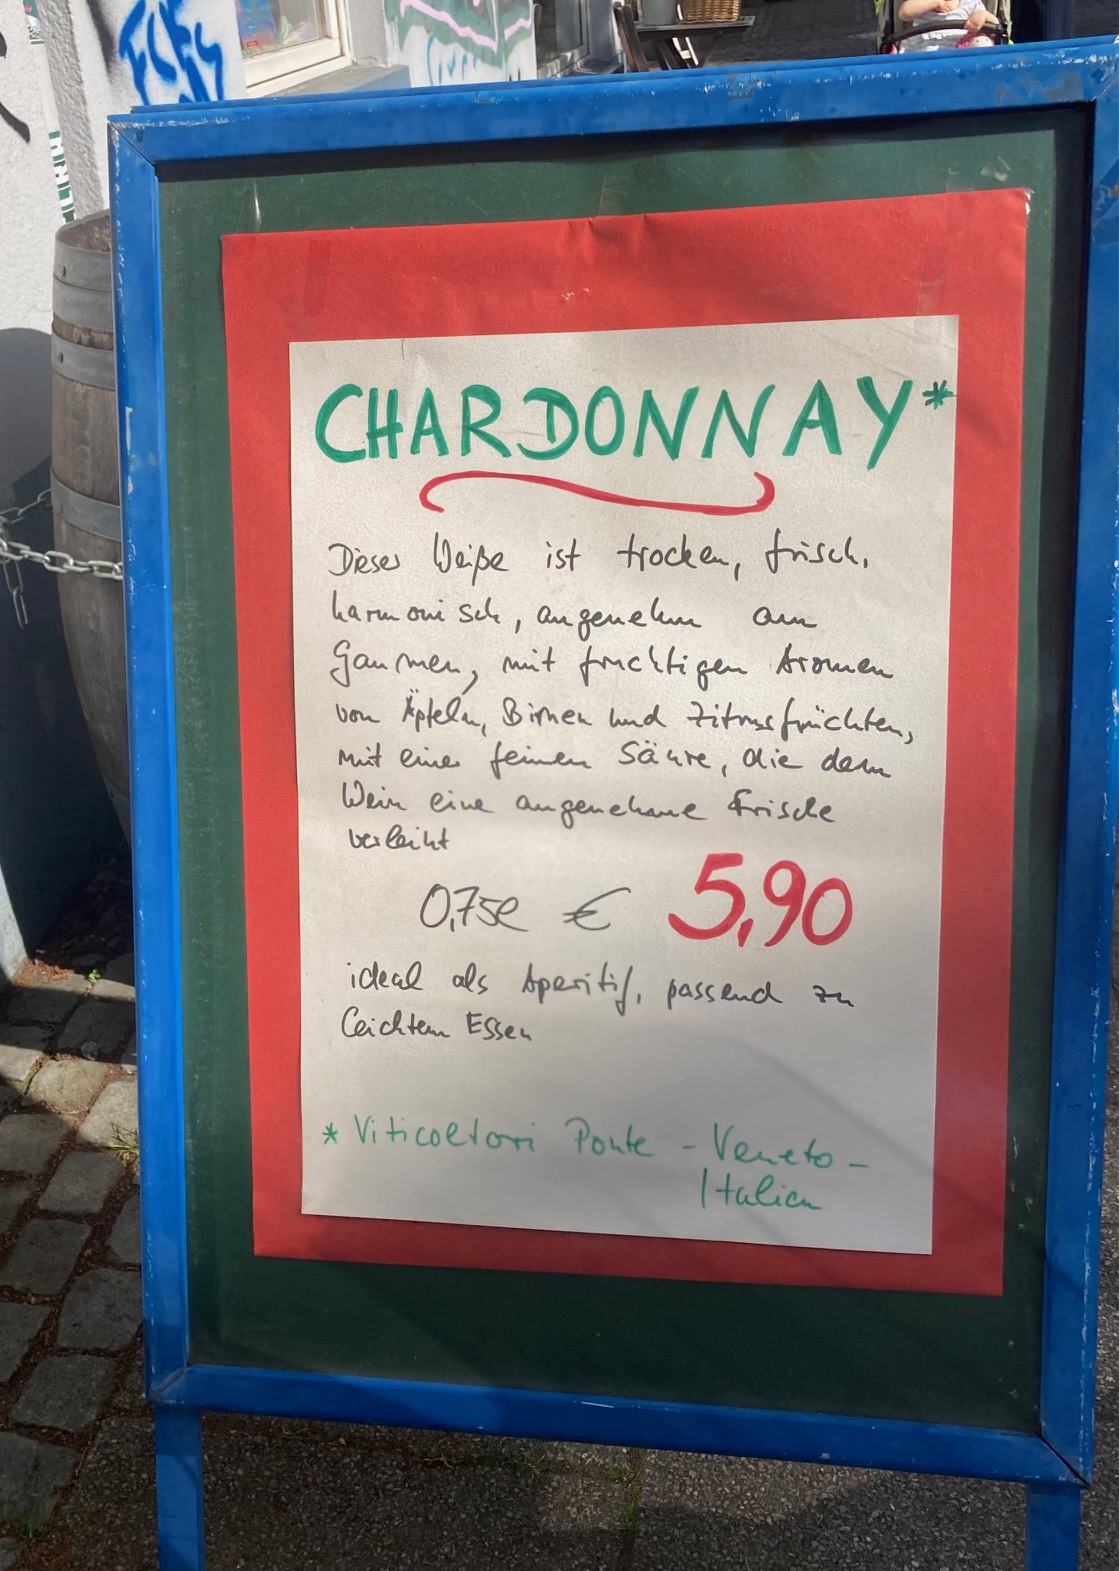 CHARDONNAY*
Dieser Weiße ist trocken, frisch,
harmonisch, angenehm am
Gaumen, mit fruchtigen Aromen
von Äpfeln, Birnen und Zitrusfrüchten,
mit einer feinen Säure, die dem
Wein eine angenehme Frische
verleiht
0,75l € 5,90
ideal als Aperitif, passend zu
leichtem Essen
* Viticoltori Ponte - Veneto -
Italien